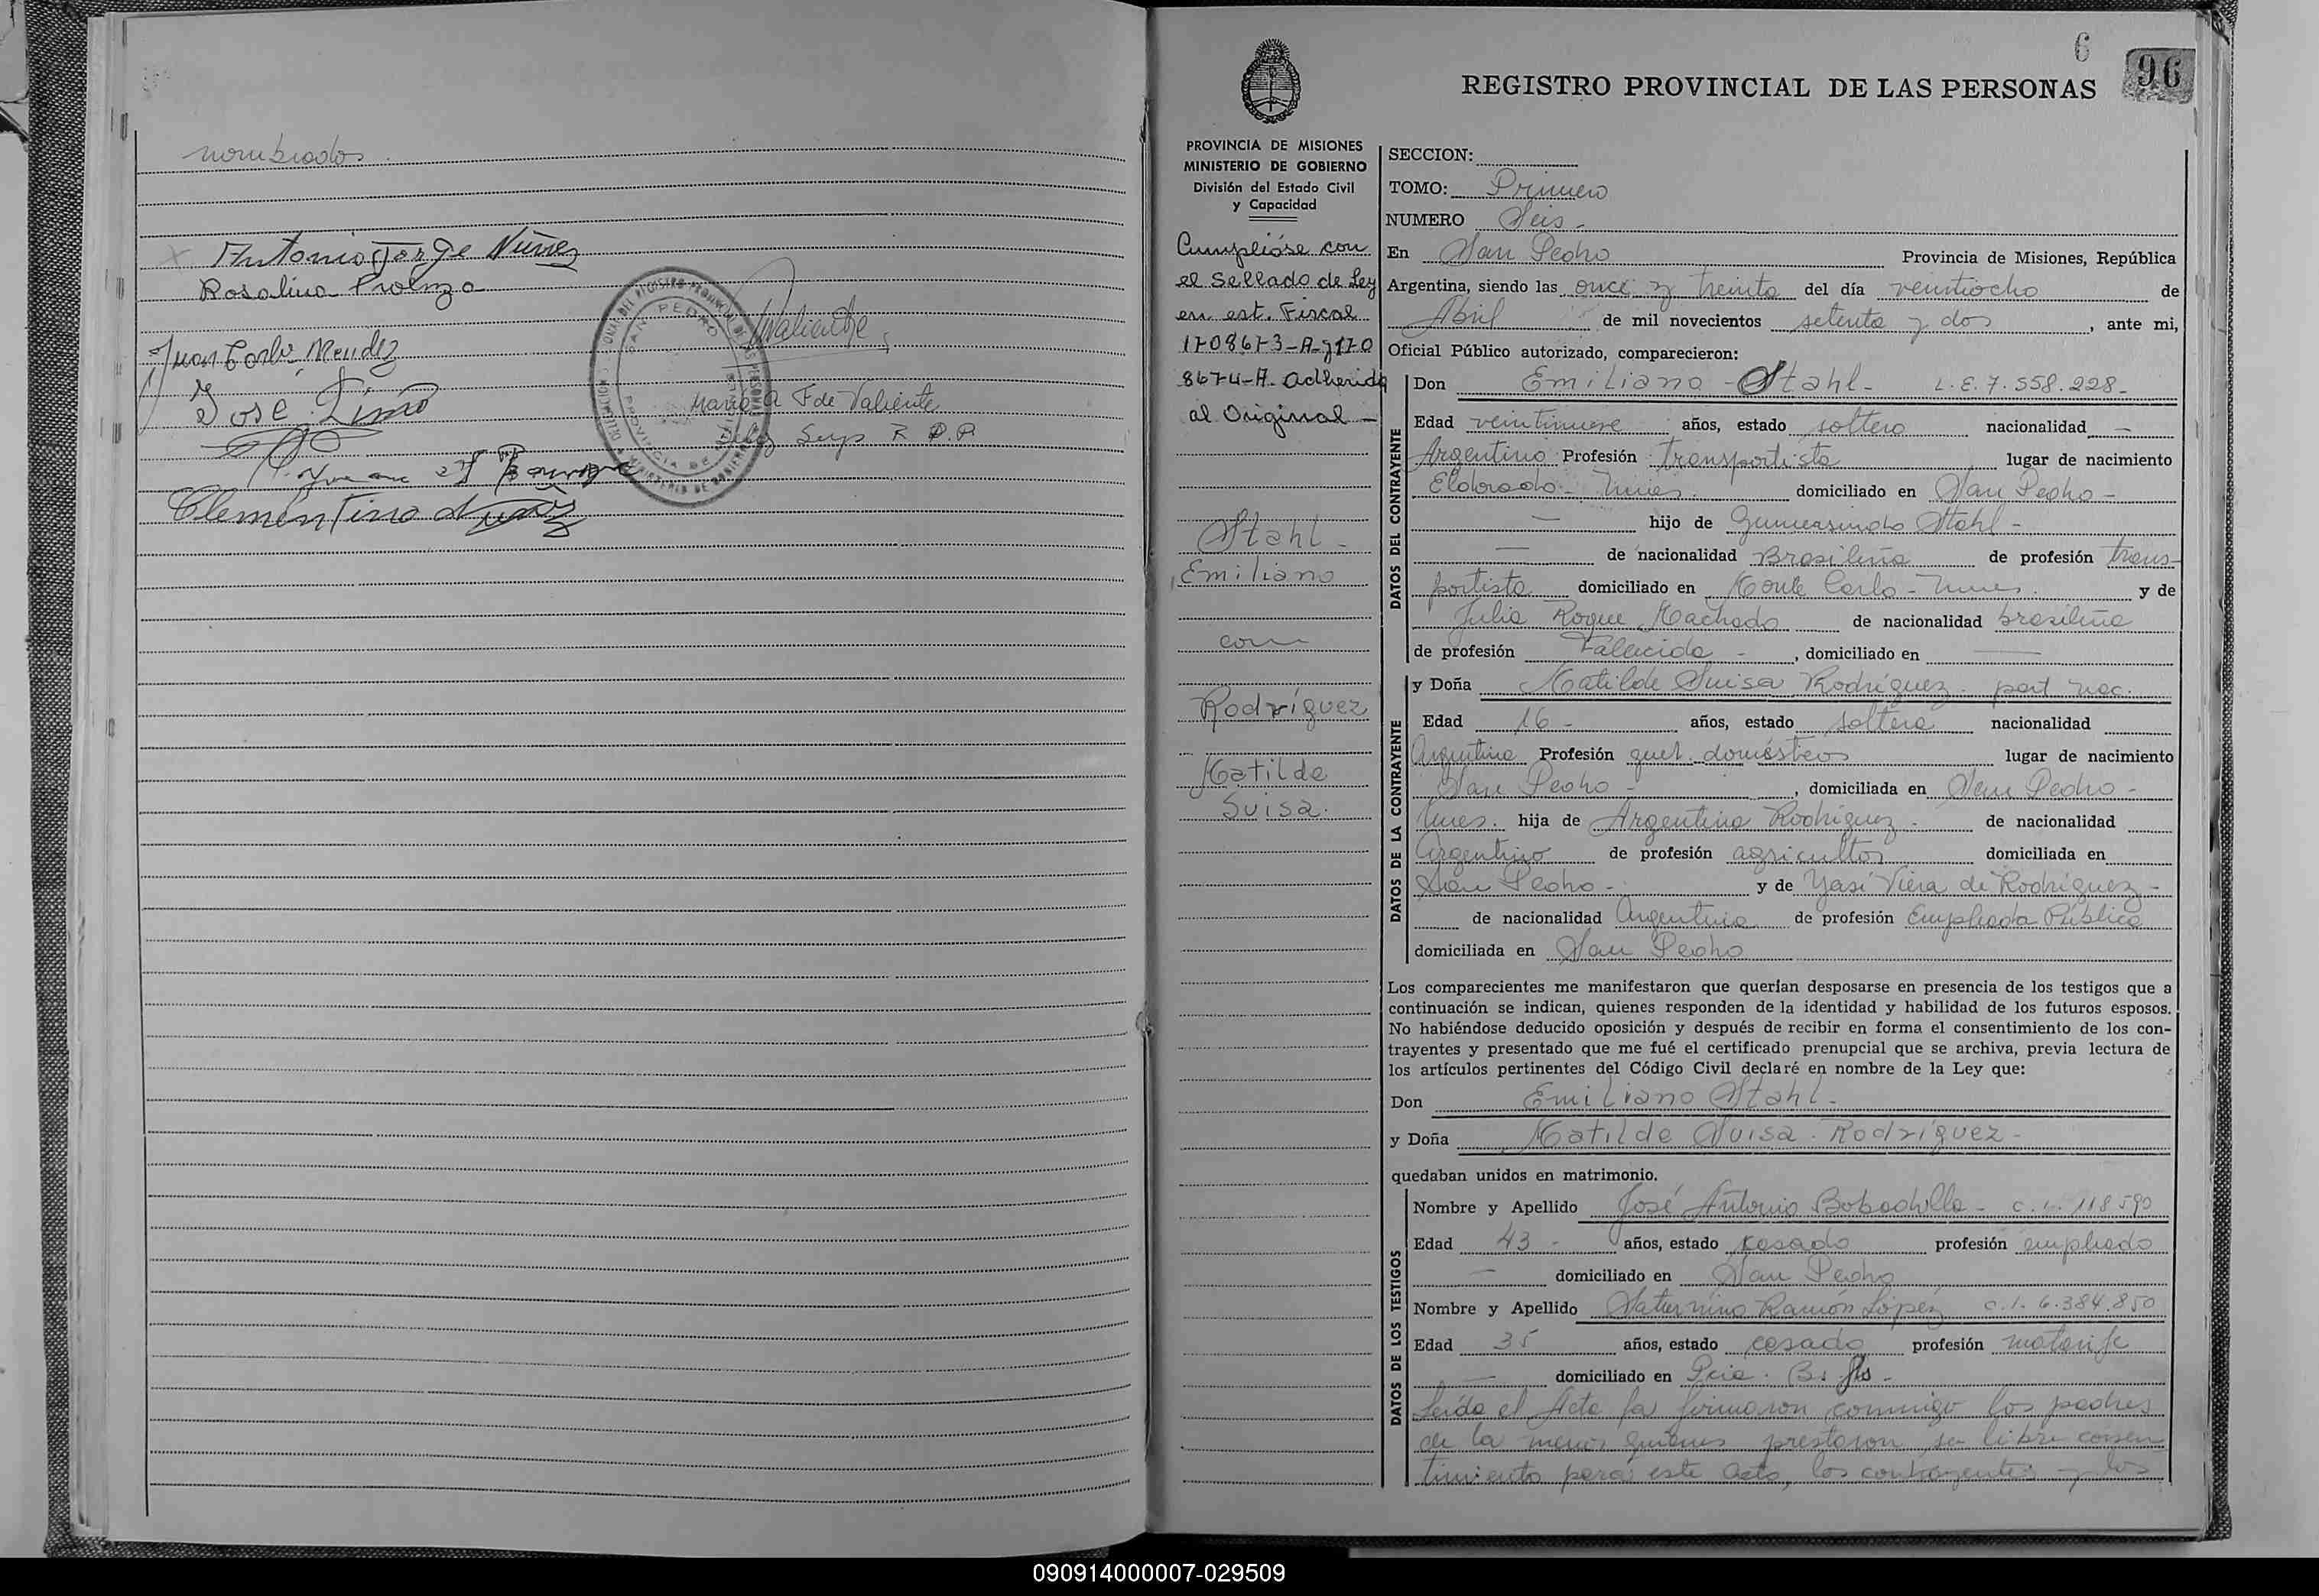 nombrados
Antonio Jorge Núñez
Rosalina Proenza
Juan Carlos Mendez
José Lino
Clementino Nuñez
SAN PEDRO
Valiente
Maria A F de Valiente
R.P.P.
6
96
REGISTRO PROVINCIAL DE LAS PERSONAS
PROVINCIA DE MISIONES
MINISTERIO DE GOBIERNO
División del Estado Civil
y Capacidad
Cumplióse con
el Sellado de Ley
en est. Fiscal
1708673-A-y 170
8674-A- adherido
al Original -
Stahl -
Emiliano
con
Rodríguez
Matilde
Suisa.
SECCION:
TOMO: Primero
NUMERO Seis -
En San Pedro Provincia de Misiones, República
Argentina, siendo las once y treinta del día veintiocho de
Abril de mil novecientos setenta y dos, ante mi,
Oficial Público autorizado, comparecieron:
DATOS DEL CONTRAYENTE
Don Emiliano - Stahl - L.E. 7.558.228 -
Edad veintinueve años, estado soltero nacionalidad -
Argentino Profesión transportista lugar de nacimiento
Eldorado - Mnes. domiciliado en San Pedro -
- hijo de Gumersindo Stahl -
- de nacionalidad Brasileña de profesión trans-
portista domiciliado en Monte Carlo - Mnes. y de
Julia Roque Machado de nacionalidad brasileña
de profesión Falecida -, domiciliado en -
DATOS DE LA CONTRAYENTE
y Doña Matilde Suisa Rodríguez - part. nac.
Edad 16 - años, estado soltera nacionalidad
Argentina Profesión queh. domésticos lugar de nacimiento
San Pedro -, domiciliada en San Pedro -
Mnes. hija de Argentino Rodríguez - de nacionalidad
Argentino de profesión agricultor domiciliada en
San Pedro - y de Yasí Viera de Rodríguez -
de nacionalidad Argentina de profesión Empleada Pública
domiciliada en San Pedro
Los comparecientes me manifestaron que querían desposarse en presencia de los testigos que a
continuación se indican, quienes responden de la identidad y habilidad de los futuros esposos.
No habiéndose deducido oposición y después de recibir en forma el consentimiento de los con-
trayentes y presentado que me fué el certificado prenupcial que se archiva, previa lectura de
los artículos pertinentes del Código Civil declaré en nombre de la Ley que:
Don Emiliano Stahl -
y Doña Matilde Suisa Rodríguez -
quedaban unidos en matrimonio.
DATOS DE LOS TESTIGOS
Nombre y Apellido José Antonio Bobadilla - C.I. 118590
Edad 43 - años, estado casado profesión empleado
- domiciliado en San Pedro
Nombre y Apellido Saturnino Ramón López C.I. 6.384.850
Edad 35 años, estado casado profesión matarife
- domiciliado en Pcia. Bs. As -
Leída el Acta la firmaron conmigo los padres
de la menor quienes prestaron su libre consen
timiento para este acto, los contrayentes y los
090914000007-029509